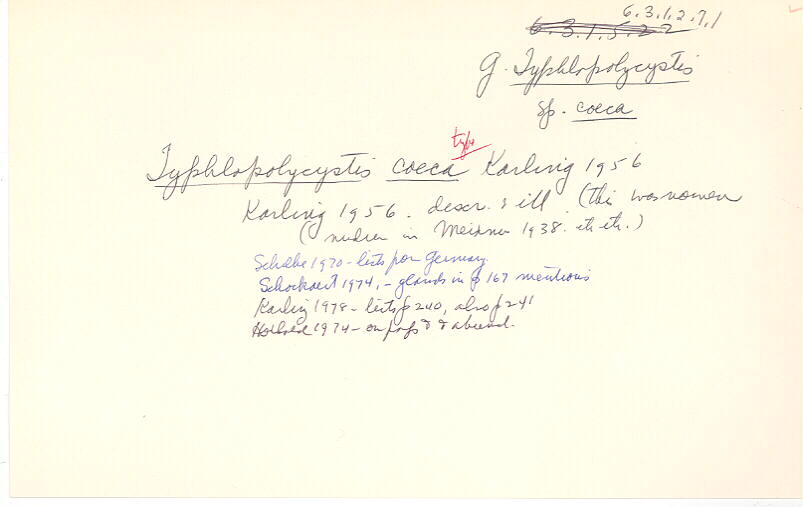 6.3.1.2.7.1
6.3.1.5.22
G. Typhlopolycystis
sp. coeca
type
Typhlopolycystis coeca Karling 1956
Karling 1956. descr. & ill (this was nomen
nudum in Meixner 1938. etc etc.)
1970 - lists for Germany.
Schockaert 1974, - glands in p 167 mentions
Karling 1978 - lists p 240, also p 241
1974 - on &